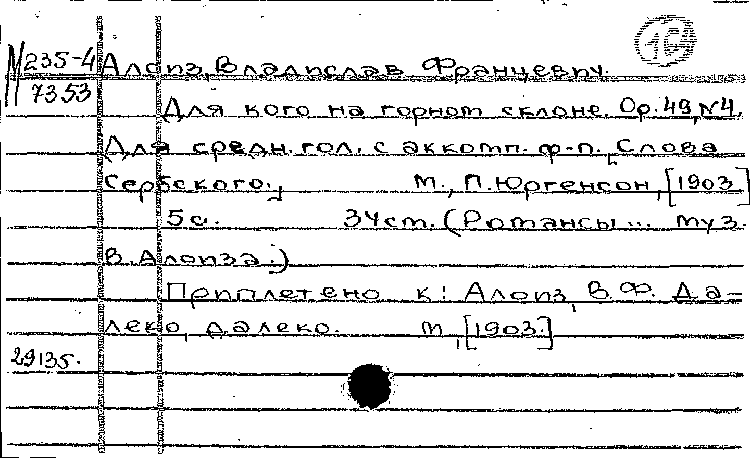 16
М 235-4 Алоиз, Владислав Францевич.
7353
Для кого на горном склоне. Ор. 49, №4.
Для средн. гол. с аккомп. ф-п. [Слова
Сербского.] М., П. Юргенсон, [1903]
5 с. 34 см. (Романсы... муз.
В. Алоиза.)
Приплетено к: Алоиз, В.Ф. Да-
леко, далеко. М., [1903.]
29135.